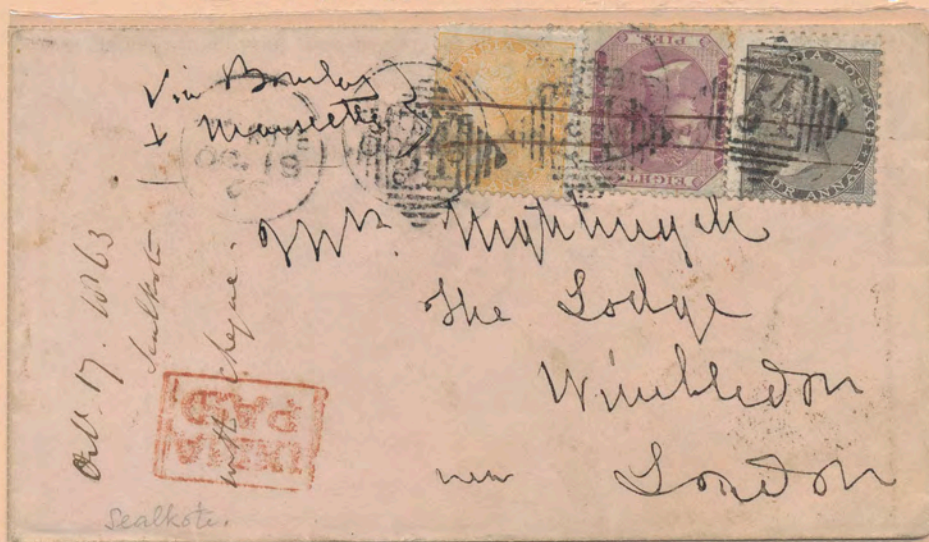 Via Bombay
& Marseilles
Mrs. Nightingale
The Lodge
Wimbledon
near London
Oct. 17. 1863
Sealkote
with cheque.
INDIA
PAID
Sealkote.
OC 19
EIGHT
PIE
INDIA POSTAGE
FOUR ANNAS